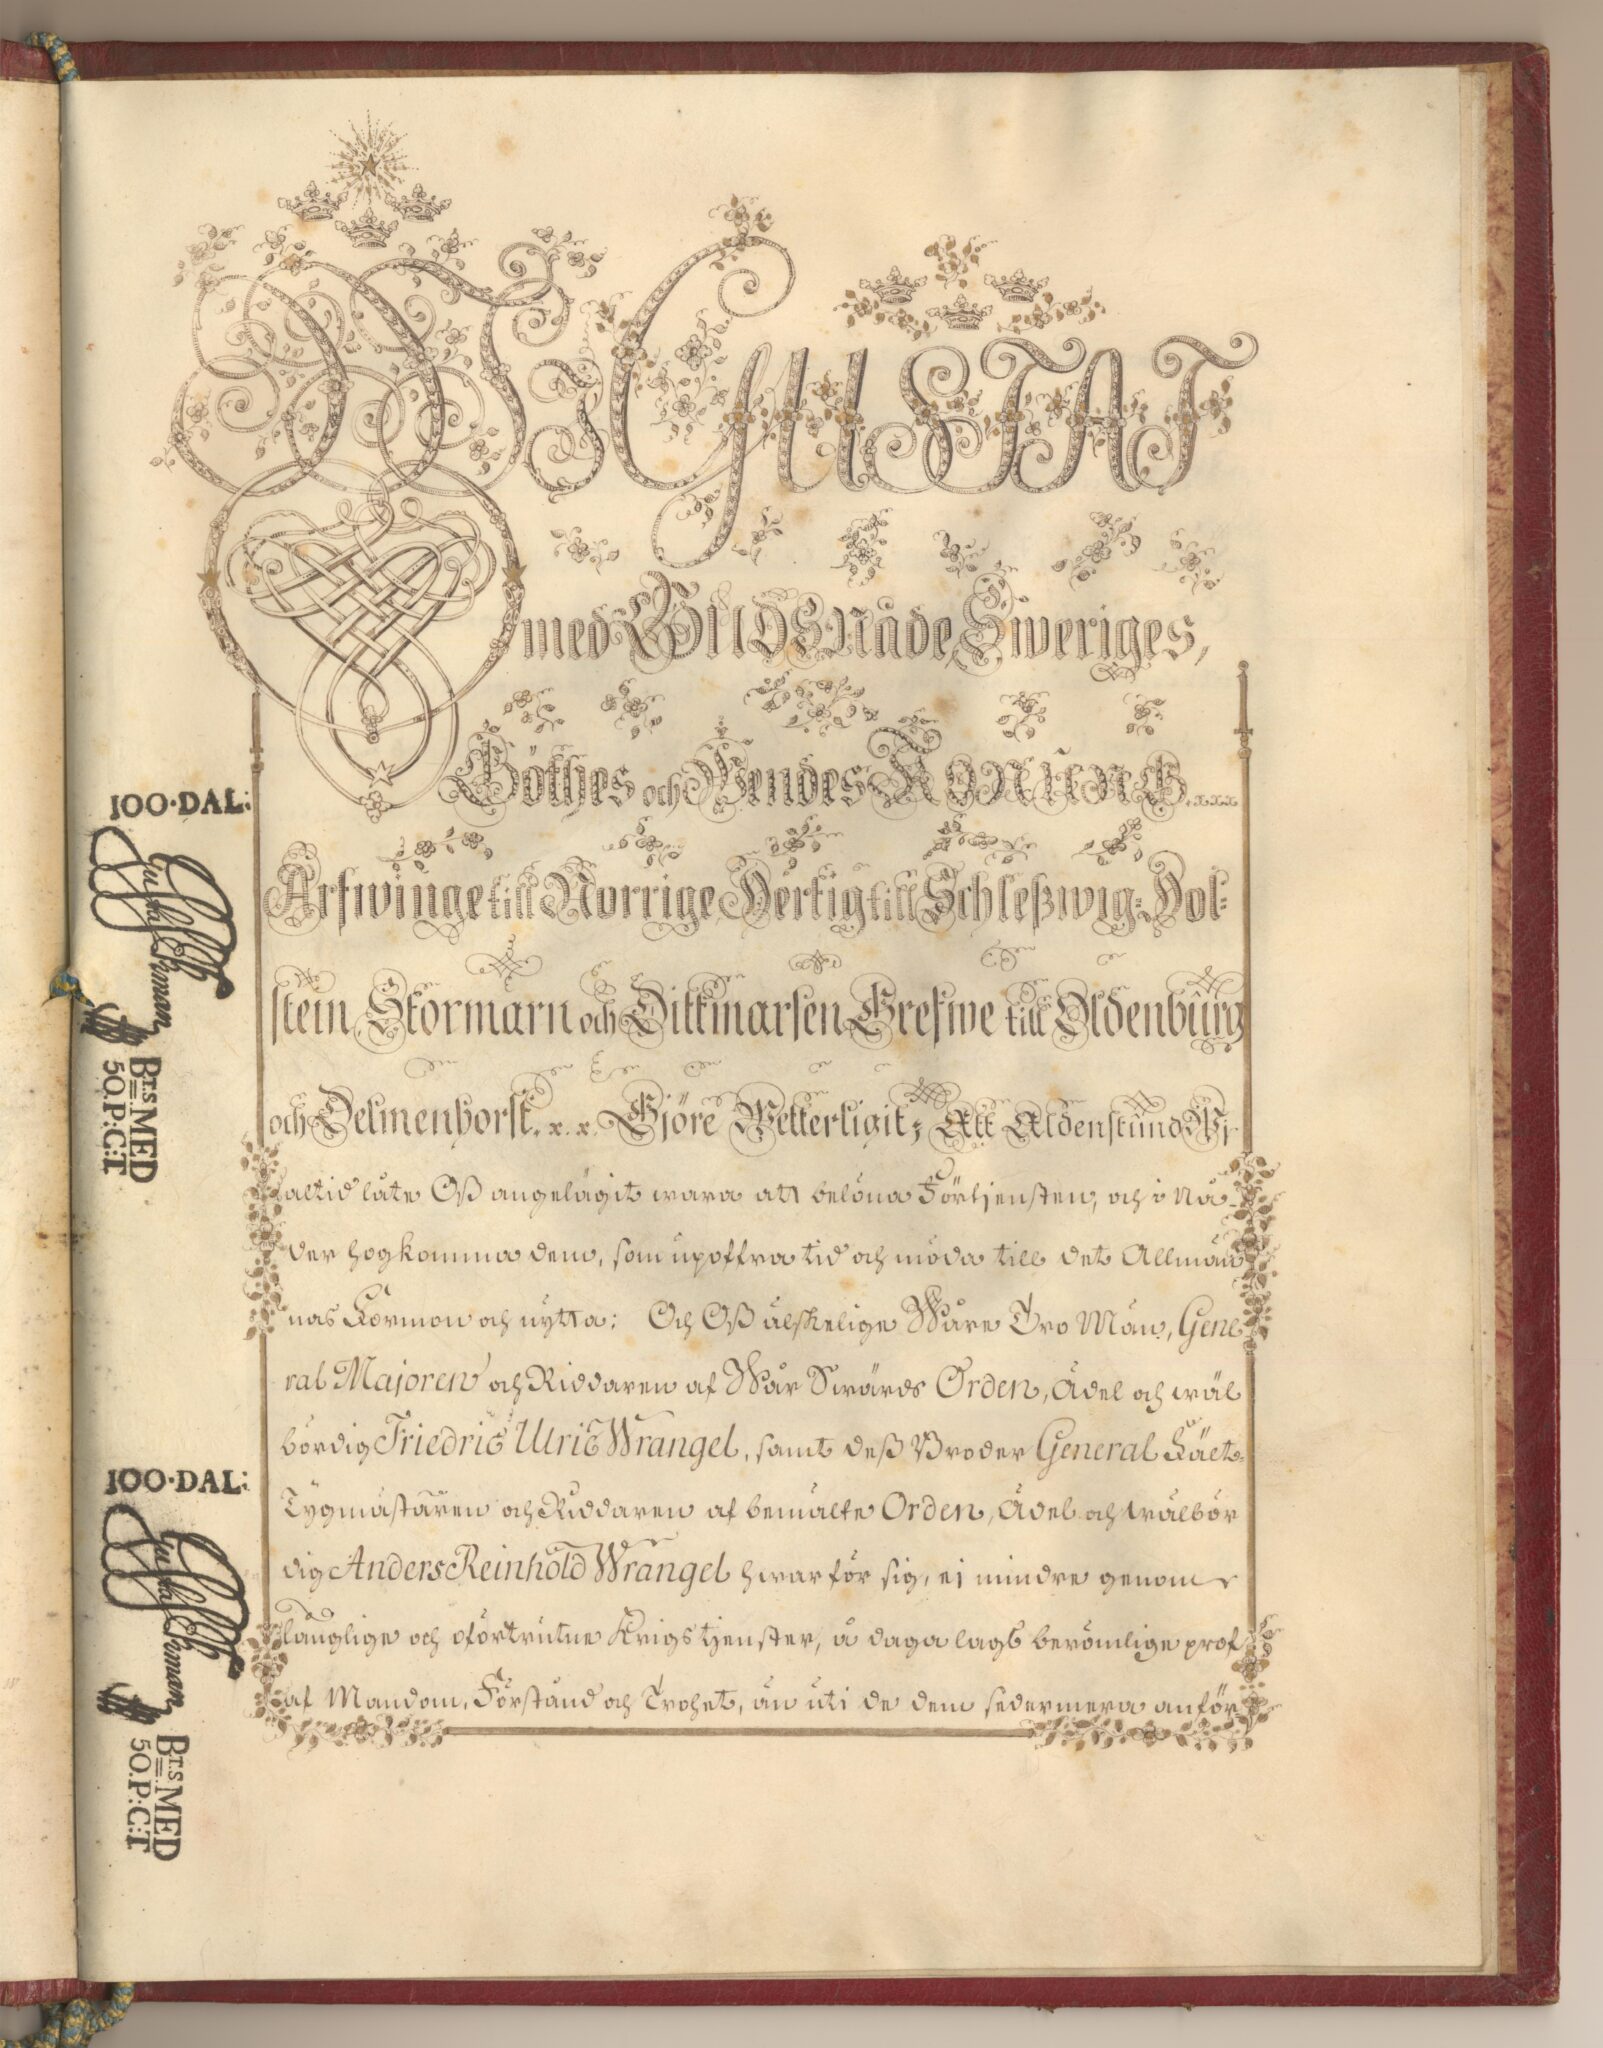 Wi GUSTAF
med GUDS Nåde, Sweriges,
Göthes och Wendes KONUNG. xxx
Arfwinge till Norrige, Hertig till Schleßwig-Hol-
stein, Stormarn och Dittmarsen, Grefwe till Oldenburg
och Delmenhorst. x. x. Gjöre Wetterligit; Att Aldenstund Wi
altid låte Oß angelägit wara att belöna Förtjensten, och i Nå-
der hogkomma dem, som upoffra tid och möda till det Allmän
nas Förmon och nytta: Och Oß älskelige Wåre Tro Män, Gene
ral Majoren och Riddaren af Wår Swärds Orden, Ädel och wäl
bördig Friedric Ulric Wrangel, samt deß Broder General Fält-
Tygmästaren och Riddaren af bemälte Orden, Ädel och wälbör
dig Anders Reinhold Wrangel hwar för sig, ej mindre genom
långlige och oförtrutne Krigstjenster, å daga lagt berömlige prof
af Mandom, Förstånd och Trohet, än uti de dem sedermera anför
100·DAL:
BT.S MED
50.P:C:T
100·DAL:
BT.S MED
50.P:C:T